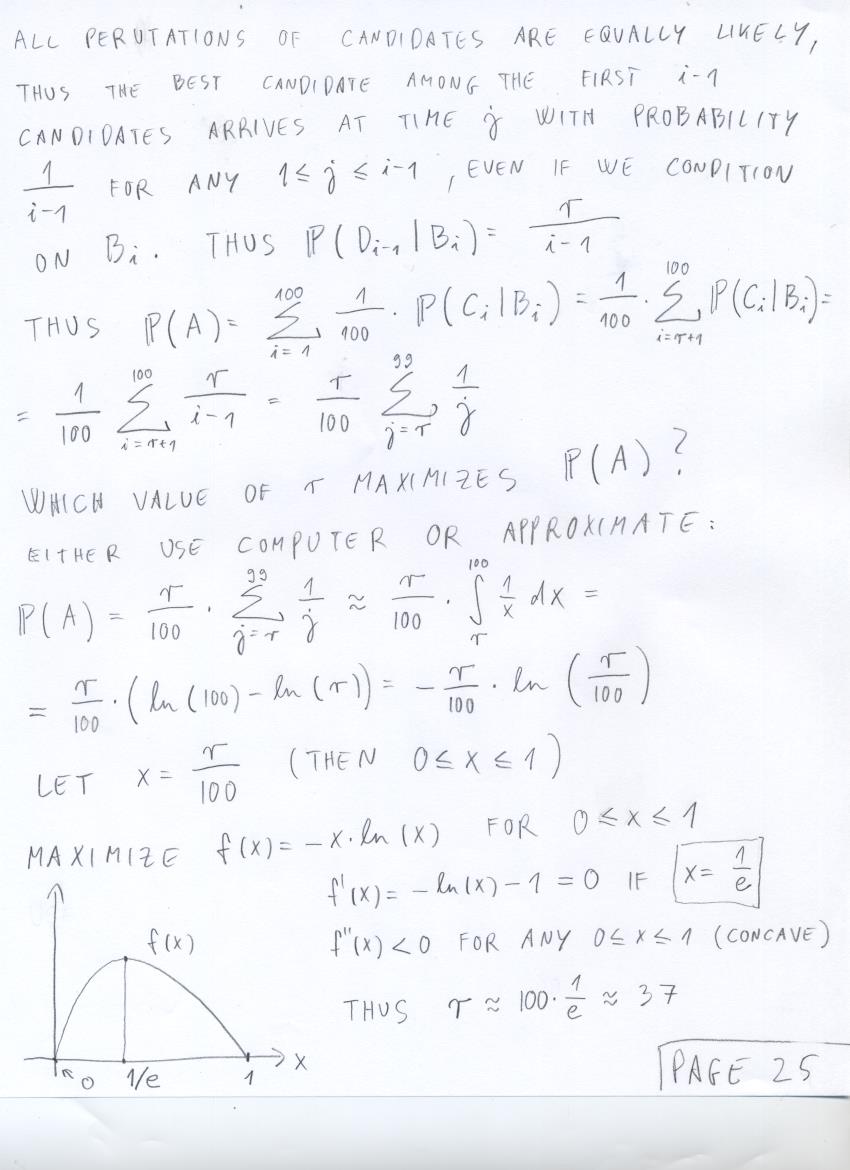 ALL PERUTATIONS OF CANDIDATES ARE EQUALLY LIKELY,
THUS THE BEST CANDIDATE AMONG THE FIRST i-1
CANDIDATES ARRIVES AT TIME j WITH PROBABILITY
1/(i-1) FOR ANY 1≤j≤i-1, EVEN IF WE CONDITION
ON B_i. THUS ℙ(D_{i-1}|B_i) = r/(i-1)
THUS ℙ(A) = ∑_{i=1}^{100} 1/100 · ℙ(C_i|B_i) = 1/100 · ∑_{i=r+1}^{100} ℙ(C_i|B_i) =
= 1/100 ∑_{i=r+1}^{100} r/(i-1) = r/100 ∑_{j=r}^{99} 1/j
WHICH VALUE OF r MAXIMIZES ℙ(A)?
EITHER USE COMPUTER OR APPROXIMATE:
ℙ(A) = r/100 · ∑_{j=r}^{99} 1/j ≈ r/100 · ∫_r^{100} 1/x dx =
= r/100 · (ln(100) - ln(r)) = - r/100 · ln(r/100)
LET x = r/100 (THEN 0≤x≤1)
MAXIMIZE f(x) = -x·ln(x) FOR 0≤x≤1
f'(x) = -ln(x)-1 = 0 IF x = 1/e
f''(x) < 0 FOR ANY 0≤x≤1 (CONCAVE)
THUS r ≈ 100·1/e ≈ 37
f(x)
x
0 1/e 1
PAGE 25